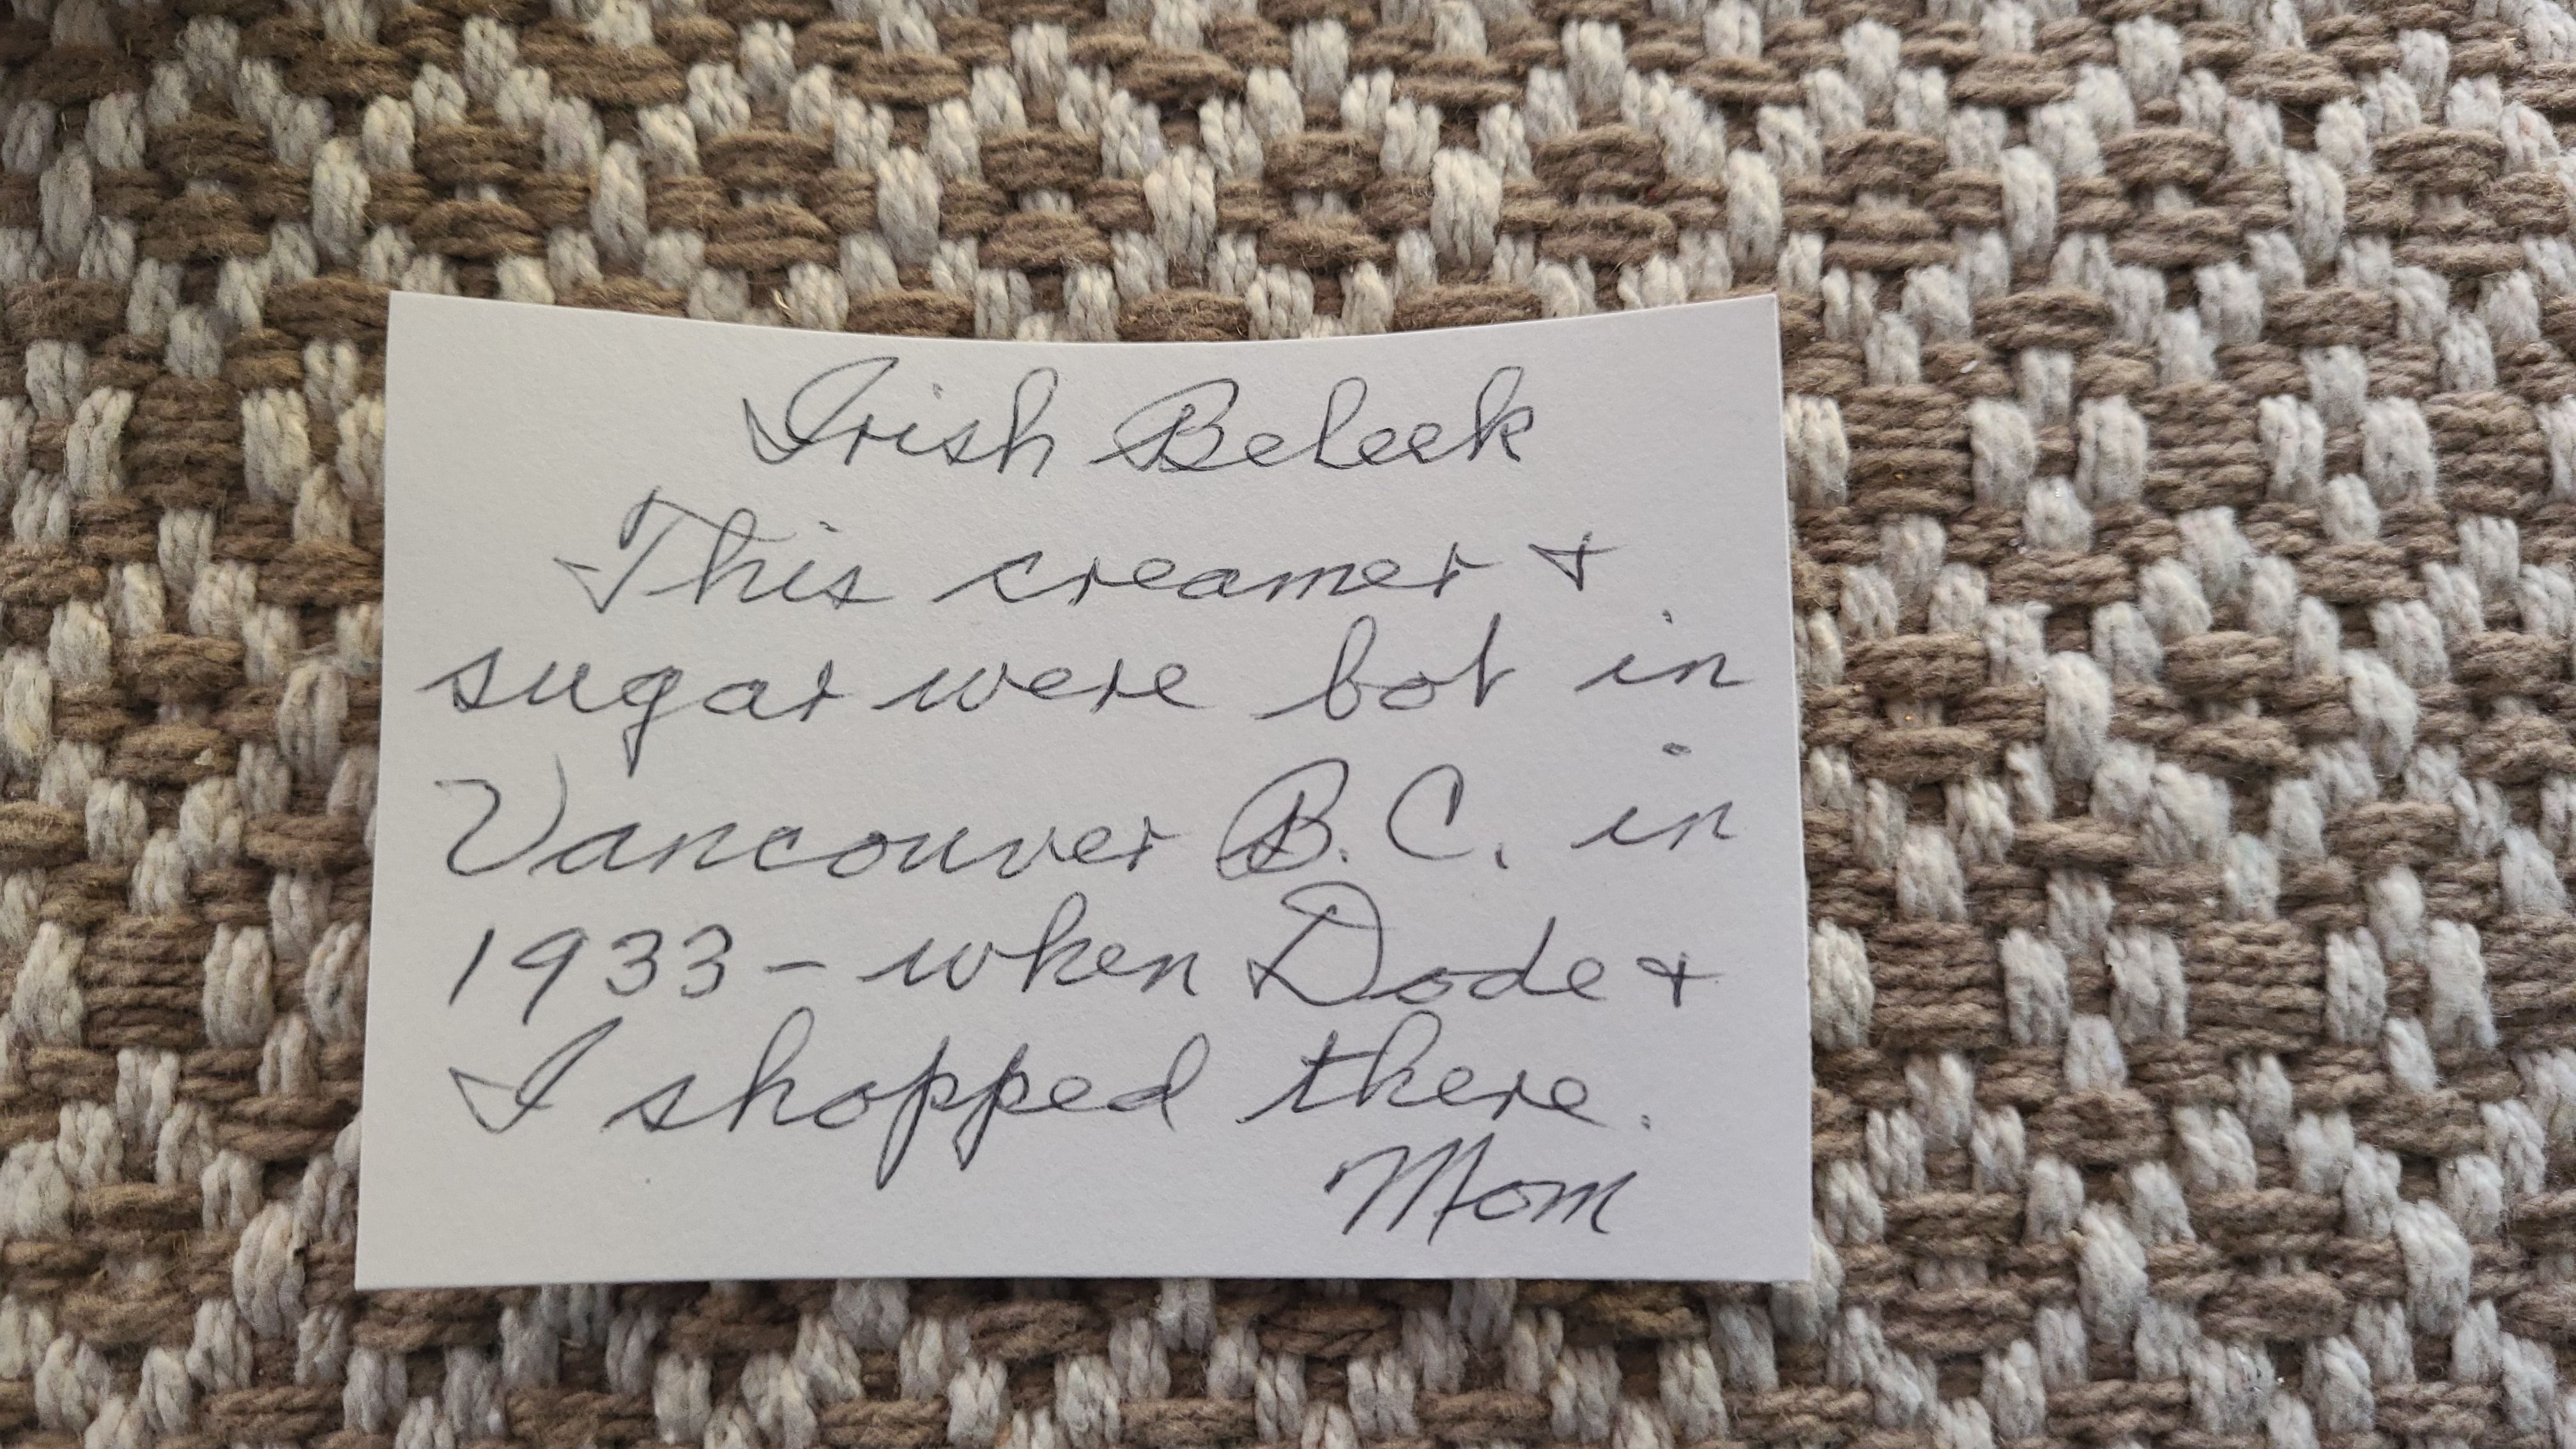 Irish Beleek
This creamer +
sugar were bot in
Vancouver B.C. in
1933 - when Dode +
I shopped there.
Mom